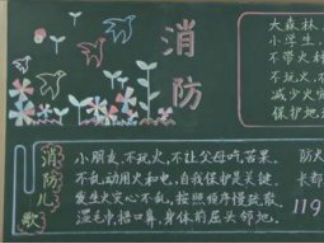 消防
大森林
小学生，
不带火
不玩火，不
减少火灾
保护地
消防儿歌
小朋友，不玩火，不让父母吃苦果。
不乱动用火和电，自我保护是关键。
发生火灾心不乱，按照顺序慢疏散。
湿毛巾捂口鼻，身体前屈头邻地。
防火
长都
119